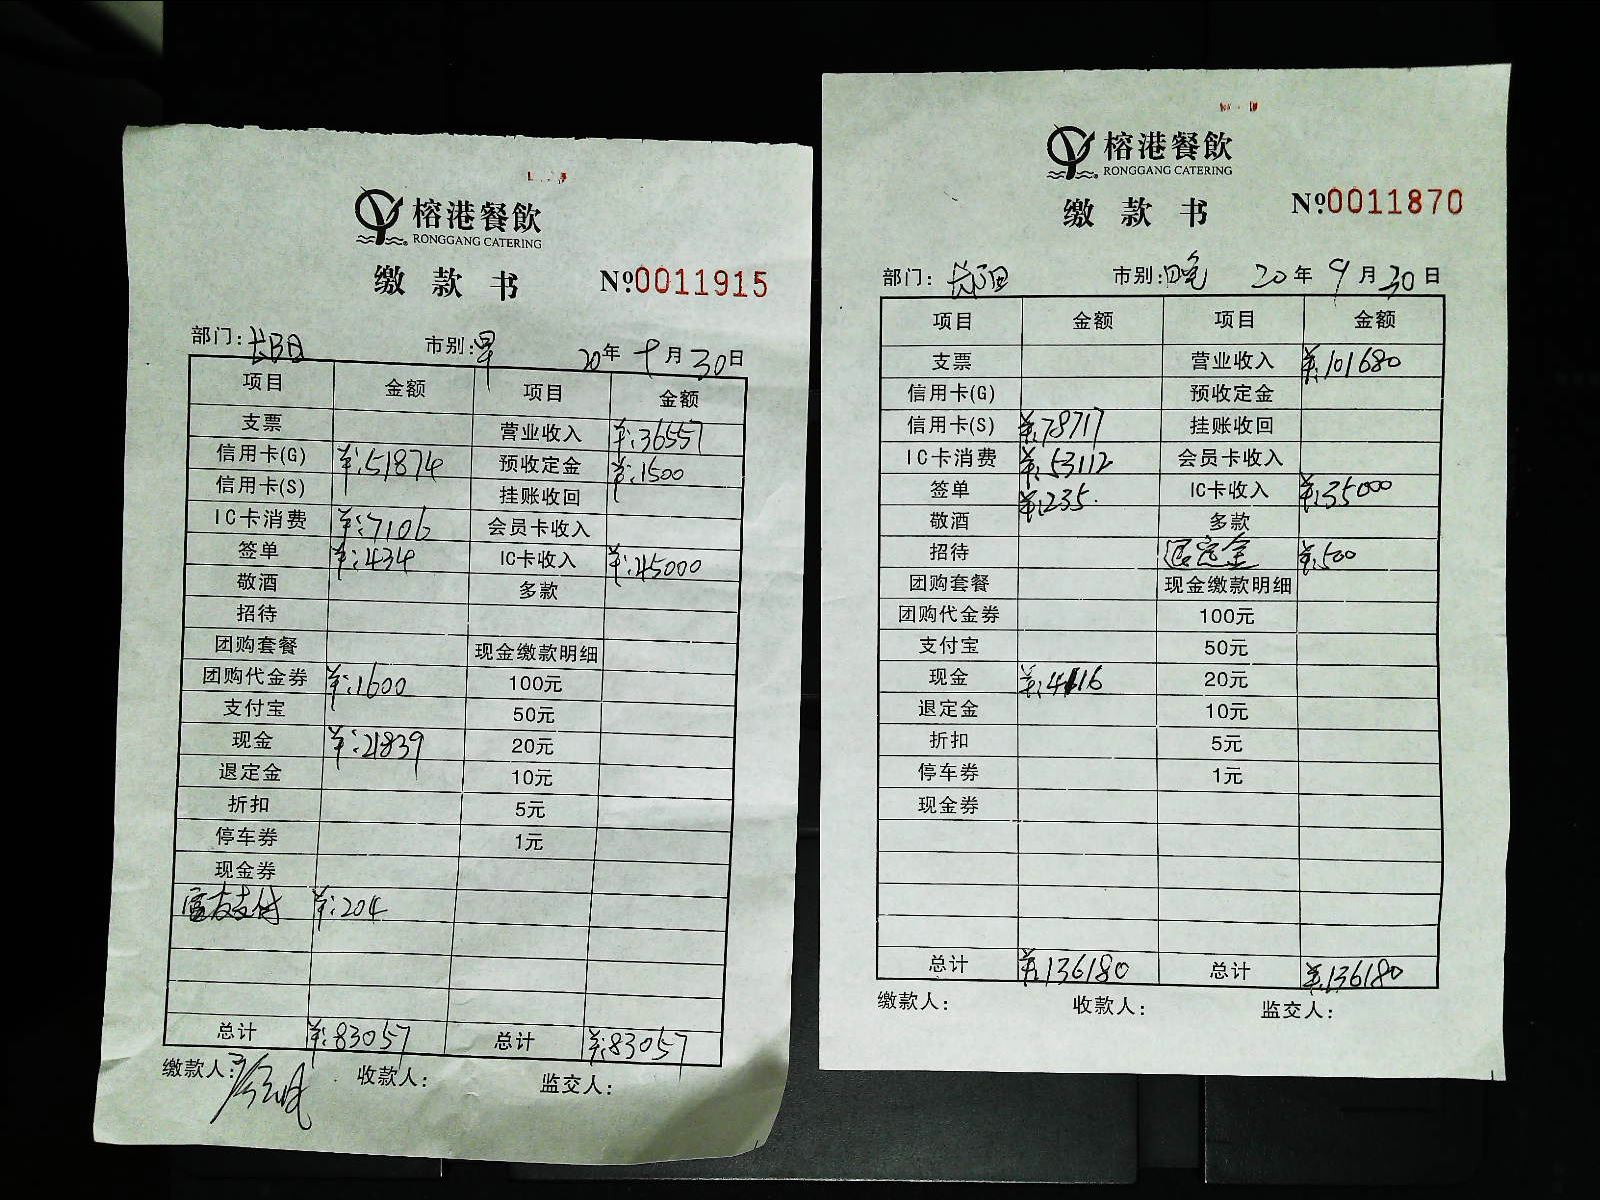 榕港餐飲
RONGGANG CATERING
缴款书 №0011915
部门: 长阳 市别: 早 20年 9月 30日
项目 金额 项目 金额
支票 营业收入 ¥:36557
信用卡(G) ¥:51874 预收定金 ¥:1500
信用卡(S) 挂账收回
IC卡消费 ¥:7106 会员卡收入
签单 ¥:434 IC卡收入 ¥:45000
敬酒 多款
招待
团购套餐 现金缴款明细
团购代金券 ¥:1600 100元
支付宝 50元
现金 ¥:21839 20元
退定金 10元
折扣 5元
停车券 1元
现金券
富友支付 ¥:204
总计 ¥:83057 总计 ¥:83057
缴款人: 收款人: 监交人:
榕港餐飲
RONGGANG CATERING
缴款书 №0011870
部门: 长阳 市别: 晚 20年 9月 30日
项目 金额 项目 金额
支票 营业收入 ¥:101680
信用卡(G) 预收定金
信用卡(S) ¥:78717 挂账收回
IC卡消费 ¥:53112 会员卡收入
签单 ¥:235. IC卡收入 ¥:35000
敬酒 多款
招待 退定金 ¥:500
团购套餐 现金缴款明细
团购代金券 100元
支付宝 50元
现金 ¥:4116 20元
退定金 10元
折扣 5元
停车券 1元
现金券
总计 ¥:136180 总计 ¥:136180
缴款人: 收款人: 监交人: